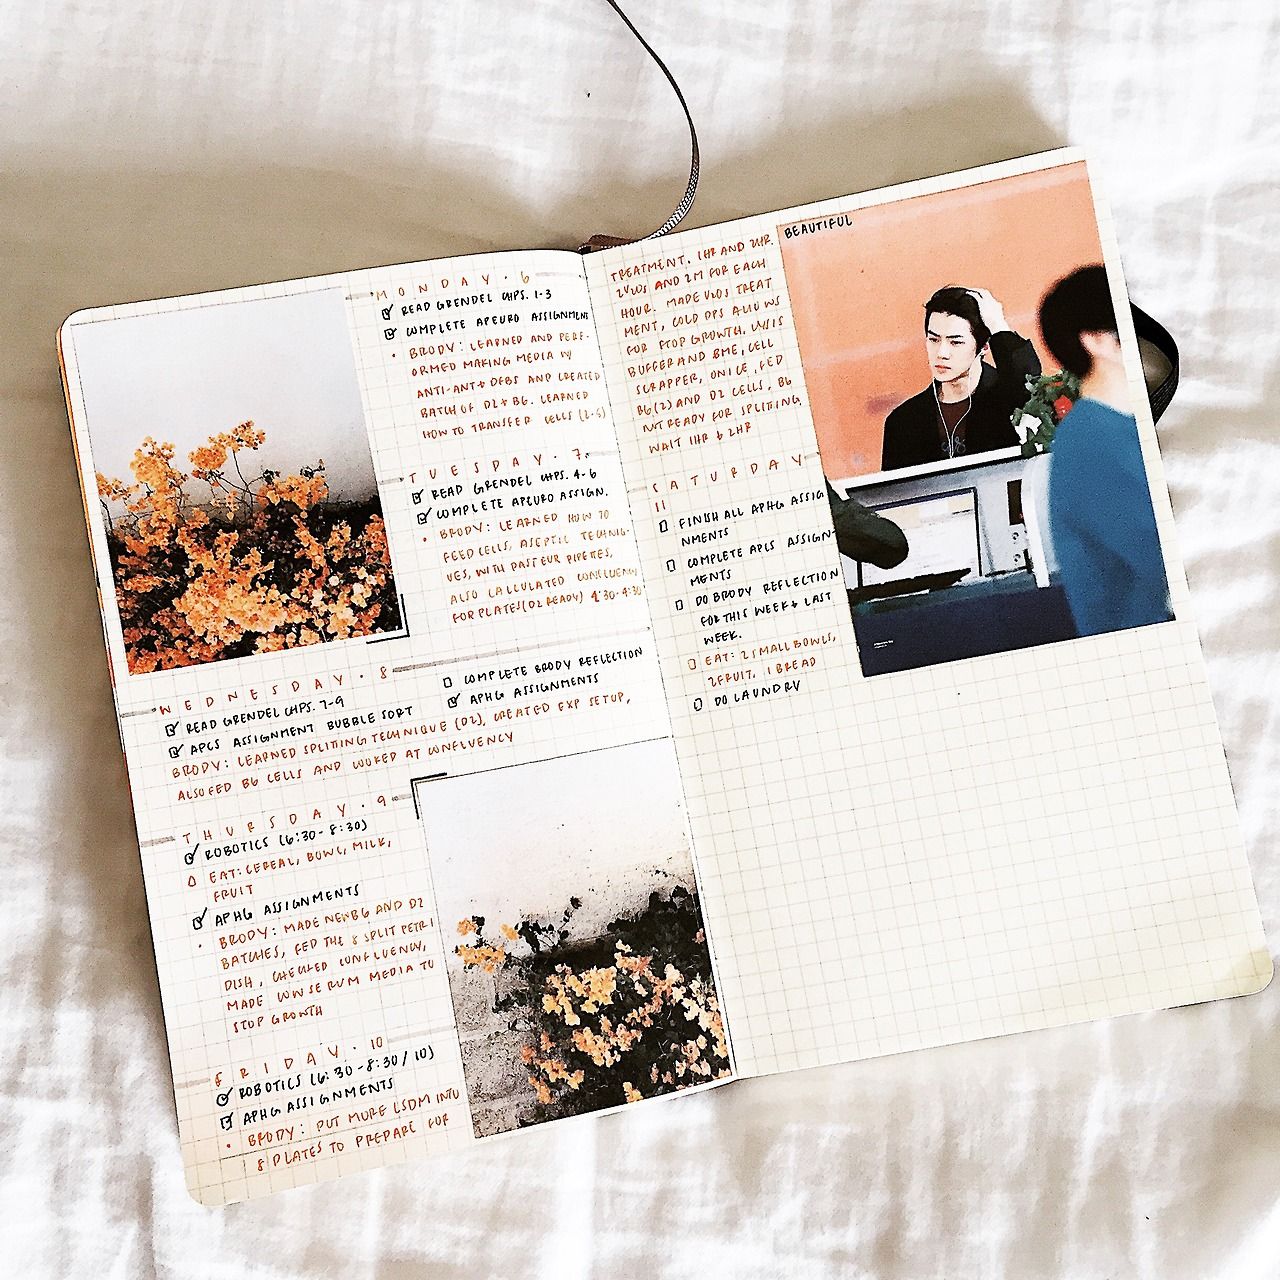 MONDAY · 6
READ GRENDEL CHPS. 1-3
COMPLETE APEURO ASSIGNMENT
· BRODY: LEARNED AND PERF-
ORMED MAKING MEDIA W/
ANTI-ANT + DFBS AND CREATED
BATCH OF D2 + B6. LEARNED
HOW TO TRANSFER CELLS
TUESDAY · 7
READ GRENDEL CHPS. 4-6
COMPLETE APEURO ASSIGN.
· BRODY: LEARNED HOW TO
FEED CELLS, ASEPTIC TECHNIQ-
UES, WITH PASTEUR PIPETTES,
ALSO CALCULATED CONFLUENCY
FOR PLATES (D2 READY) 4:30-4:30
WEDNESDAY · 8
READ GRENDEL CHPS. 7-9
APCS ASSIGNMENT BUBBLE SORT
COMPLETE BRODY REFLECTION
APHG ASSIGNMENTS
BRODY: LEARNED SPLITING TECHNIQUE (D2), CREATED EXP SETUP,
ALSO FED B6 CELLS AND LOOKED AT CONFLUENCY
THURSDAY · 9
ROBOTICS (6:30-8:30)
EAT: CEREAL, BOWL, MILK,
FRUIT
APHG ASSIGNMENTS
· BRODY: MADE NEW B6 AND D2
BATCHES, FED THE 8 SPLIT PETRI
DISH, CHECKED CONFLUENCY,
MADE LOW SERUM MEDIA TO
STOP GROWTH
FRIDAY · 10
ROBOTICS (6:30-8:30/10)
APHG ASSIGNMENTS
· BRODY: PUT MORE LSDM INTO
8 PLATES TO PREPARE FOR
TREATMENT. 1HR AND 2HR.
2V2O5 AND 2M FOR EACH
HOUR. MADE V2O5 TREAT
MENT, COLD DPS ALLOWS
FOR STOP GROWTH, LYSIS
BUFFER AND BME, CELL
SCRAPPER, ON ICE, FED
B6(2) AND D2 CELLS, B6
NOT READY FOR SPLITING,
WAIT 1HR + 2HR
SATURDAY
11
FINISH ALL APHG ASSIG
NMENTS
COMPLETE APCS ASSIGN-
MENTS
DO BRODY REFLECTION
FOR THIS WEEK + LAST
WEEK.
EAT: 2 SMALL BOWLS,
2 FRUIT, 1 BREAD
DO LAUNDRY
BEAUTIFUL